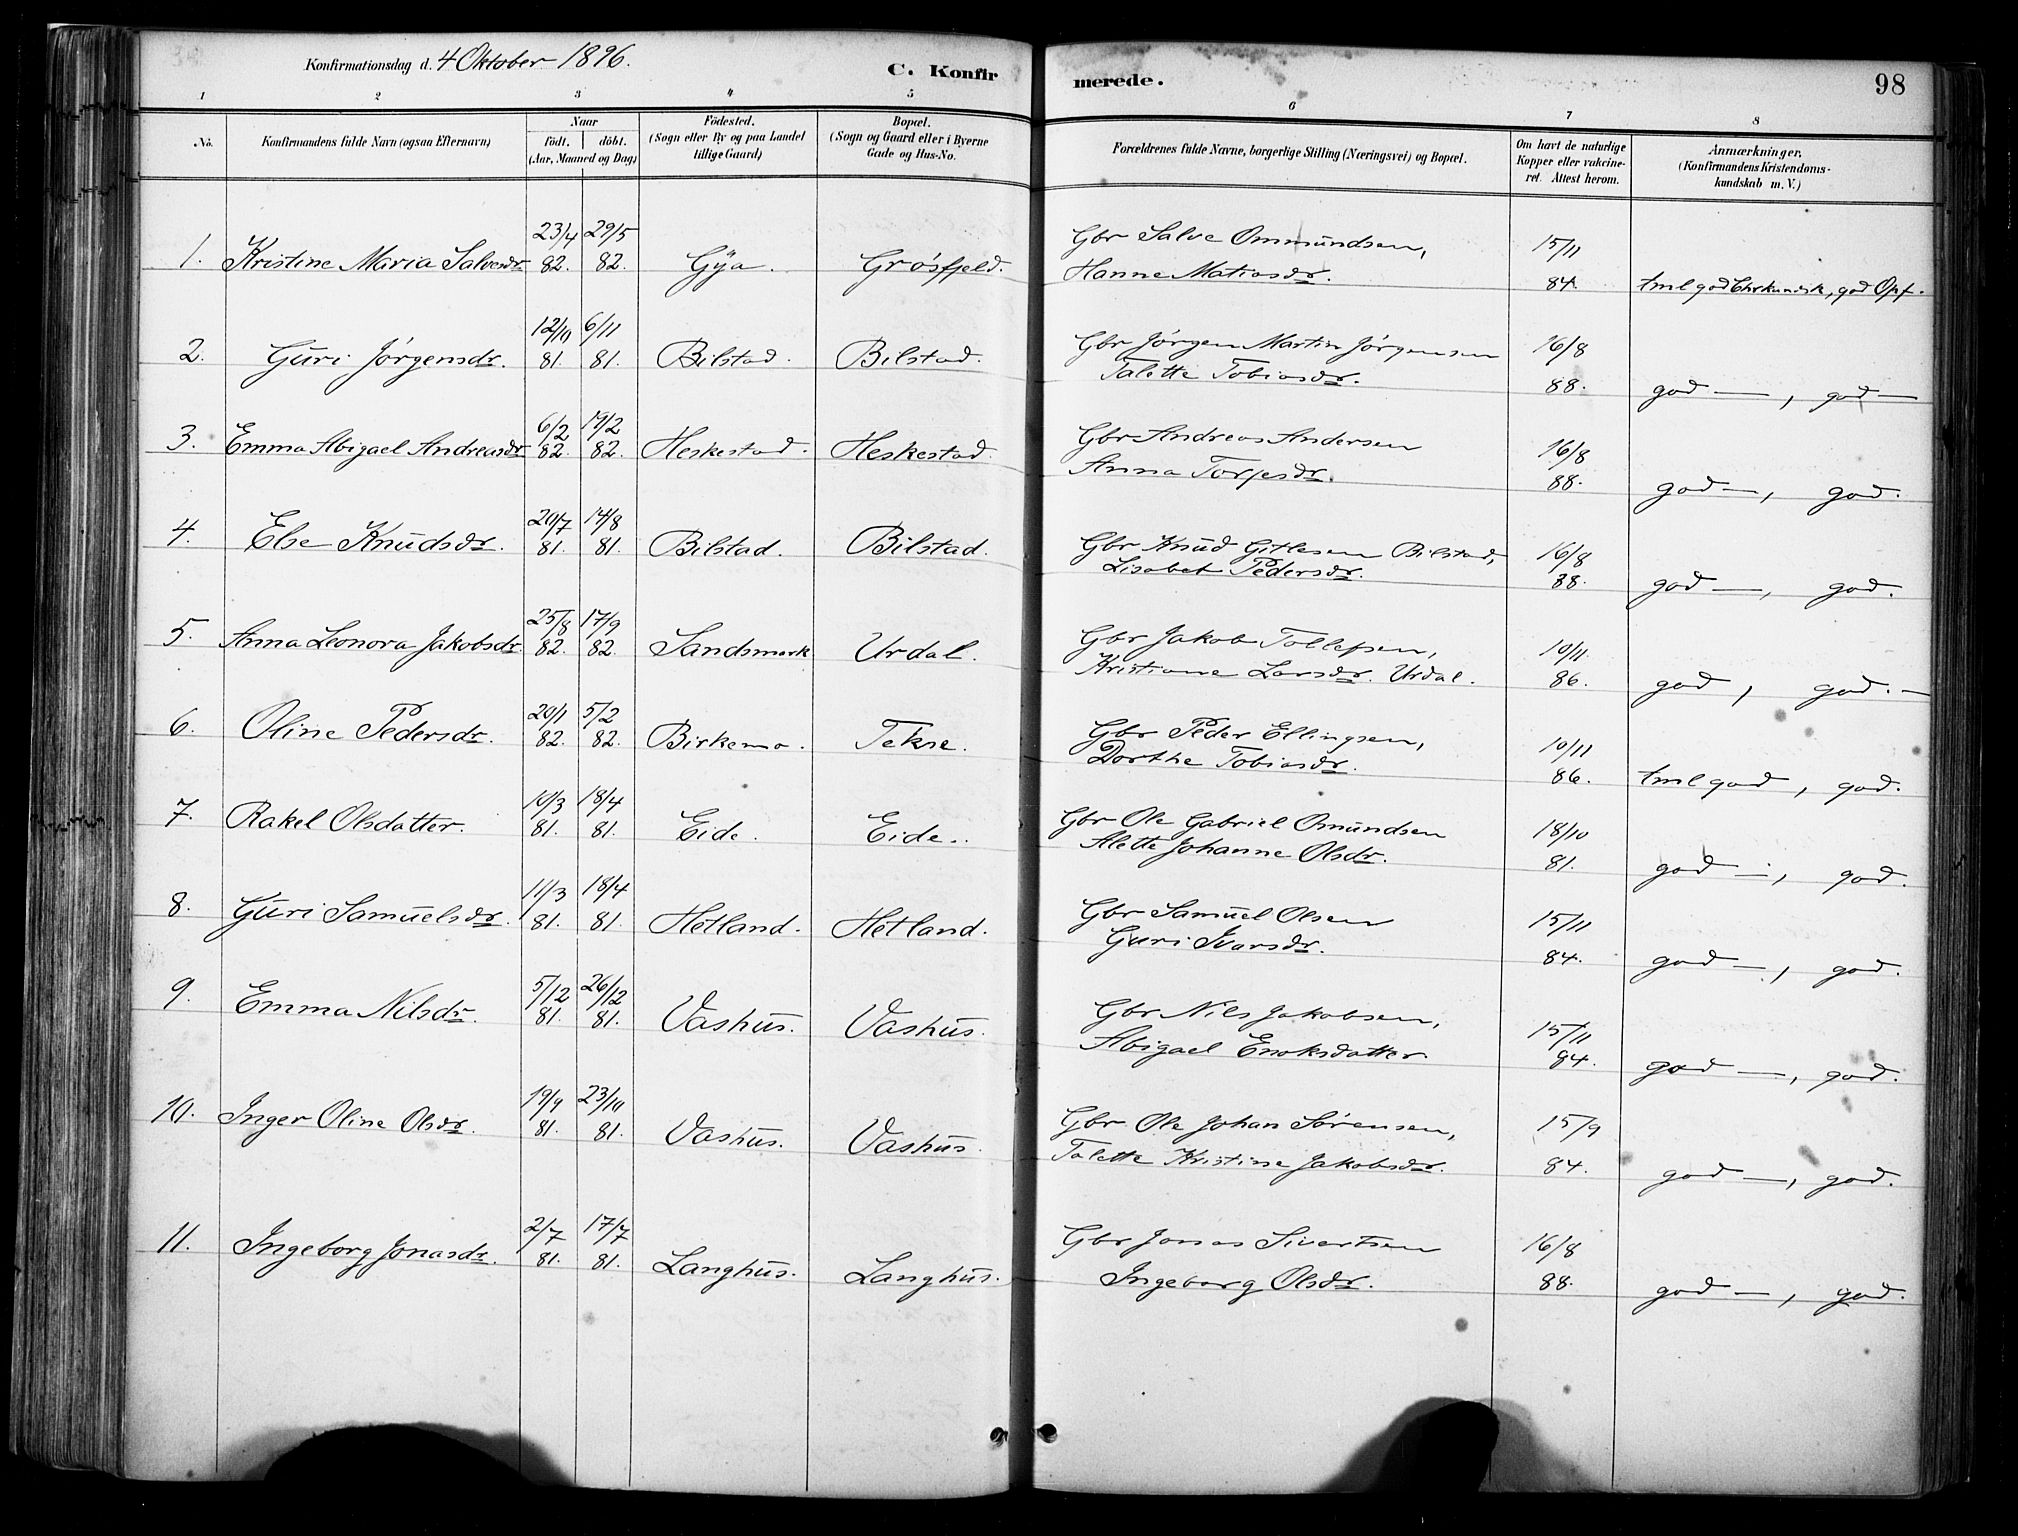 Konfirmationsdag d. 4 Oktober 1896.
C. Konfirmerede.
98
1 2 3 4 5 6 7 8
No. Konfirmandens fulde Navn (ogsaa Efternavn) Naar födt. döbt. (Aar, Maaned og Dag) Födested. (Sogn eller By og paa Landet tillige Gaard) Bopæl. (Sogn og Gaard eller i Byerne Gade og Hus-No. Forældrenes fulde Navne, borgerlige Stilling (Næringsvei) og Bopæl. Om havt de naturlige Kopper eller vakcineret. Attest herom. Anmærkninger, (Konfirmandens Kristendomskundskab m. V.)
1. Kristine Maria Salvesdr. 23/4 82. 29/5 82. Gÿa. Grösfjeld. Gbr Salve Ommundsen, Hanne Matiasdr. 15/11 84. tml god Chrkundsk, god Opf.
2. Guri Jörgensdr. 12/10 81. 6/11 81. Bilstad. Bilstad. Gbr Jörgen Martin Jörgensen Talette Tobiasdr. 16/8 88. god —, god —
3. Emma Abigael Andreasdr 6/2 82. 19/2 82. Heskestad. Heskestad. Gbr Andreas Andersen Anna Torjesdr. 16/8 88. god —, god.
4. Else Knudsdr. 20/7 81. 14/8 81. Bilstad. Bilstad. Gbr Knud Gitlesen Bilstad, Lisabet Pedersdr. 16/8 88. god —, god.
5. Anna Leonora Jakobsdr. 25/8 82. 17/9 82. Sandsmark Urdal. Gbr Jakob Tollefsen, Kristiane Larsdr. Urdal. 10/11. 86. god, god. —
6. Oline Pedersdr. 20/1 82. 5/2 82. Birkemo. Tekse. Gbr Peder Ellingsen, Dorthe Tobiasdr. 10/11 86. tml god, god.
7. Rakel Olsdatter. 10/3 81. 18/4 81. Eide. Eide. Gbr Ole Gabriel Omundsen Alette Johanne Olsdr. 18/10 81. god —, god.
8. Guri Samuelsdr. 11/3 81. 18/4 81. Hetland. Hetland. Gbr Samuel Olsen Guri Ivarsdr. 15/11 84. god —, god.
9. Emma Nilsdr. 5/12 81. 26/12 81. Vashus. Vashus. Gbr Nils Jakobsen, Abigael Enoksdatter. 15/11 84. god —, god.
10. Inger Oline Olsdr. 19/9 81. 23/10 81. Vashus. Vashus. Gbr Ole Johan Sörensen, Talette Kristine Jakobsdr. 15/9 84. god —, god.
11. Ingeborg Jonasdr. 2/7 81. 17/7 81. Langhus. Langhus. Gbr Jonas Sivertsen Ingeborg Olsdr. 16/8 88. god —, god.